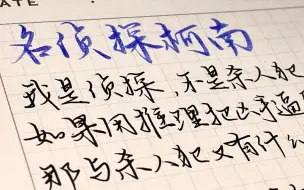 ATE
名侦探柯南
我是侦探,不是杀人犯
如果用推理把凶手逼
那与杀人犯又有什么